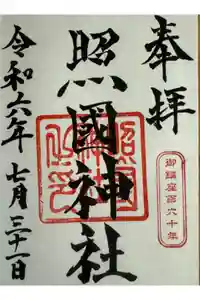 奉拝
照國神社
御鎮座百六十年
令和六年 七月三十一日